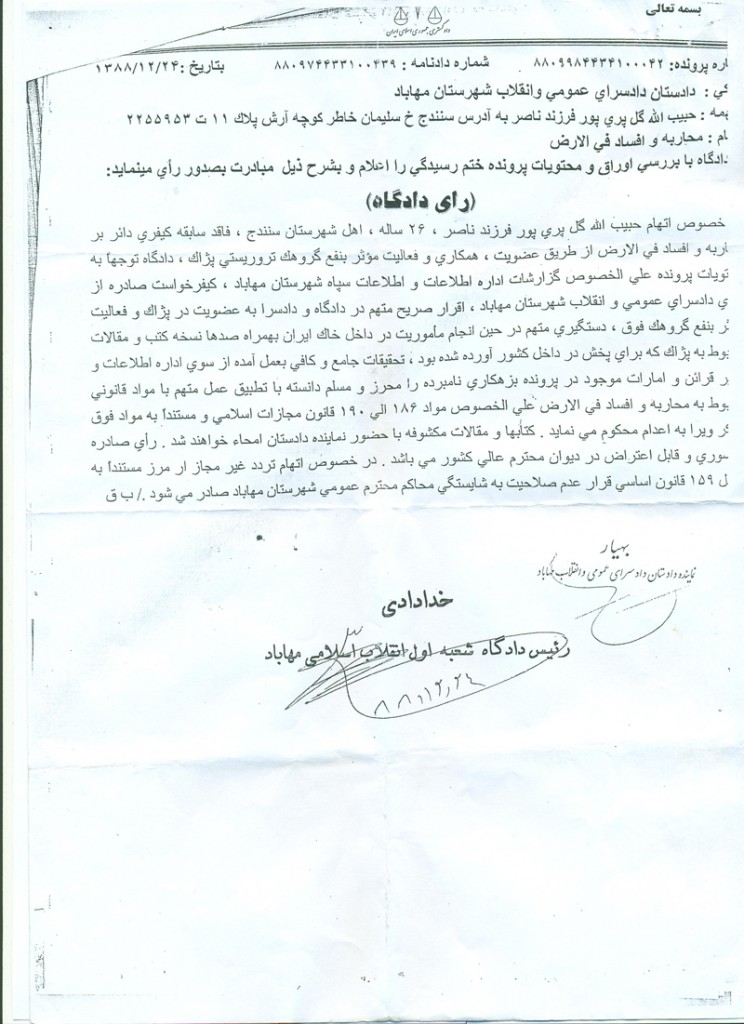 بسمه تعالی
دادگستری جمهوری اسلامی ایران
پرونده: ۸۸۰۹۹۸۴۴۳۴۱۰۰۰۴۲ شماره دادنامه : ۸۸۰۹۷۴۴۳۳۱۰۰۴۳۹ بتاریخ :۱۳۸۸/۱۲/۲۴
: دادستان دادسراي عمومي وانقلاب شهرستان مهاباد
: حبيب الله گل پري پور فرزند ناصر به آدرس سنندج خ سليمان خاطر كوچه آرش پلاك ۱۱ ت ۲۲۵۵۹۵۳
: محاربه و افساد في الارض
دادگاه با بررسي اوراق و محتويات پرونده ختم رسيدگي را اعلام و بشرح ذيل مبادرت بصدور رأي مينمايد:
(رای دادگاه)
خصوص اتهام حبيب الله گل پري پور فرزند ناصر ، ۲۶ ساله ، اهل شهرستان سنندج ، فاقد سابقه كيفري دائر بر
و افساد في الارض از طريق عضويت ، همكاري و فعاليت مؤثر بنفع گروهك تروريستي پژاك ، دادگاه توجهاً به
پرونده علي الخصوص گزارشات اداره اطلاعات و اطلاعات سپاه شهرستان مهاباد ، كيفرخواست صادره از
دادسراي عمومي و انقلاب شهرستان مهاباد ، اقرار صريح متهم در دادگاه و دادسرا به عضويت در پژاك و فعاليت
بنفع گروهك فوق ، دستگيري متهم در حين انجام مأموريت در داخل خاك ايران بهمراه صدها نسخه كتب و مقالات
به پژاك كه براي پخش در داخل كشور آورده شده بود ، تحقيقات جامع و كافي بعمل آمده از سوي اداره اطلاعات و
قرائن و امارات موجود در پرونده بزهكاري نامبرده را محرز و مسلم دانسته با تطبيق عمل متهم با مواد قانوني
به محاربه و افساد في الارض علي الخصوص مواد ۱۸۶ الي ۱۹۰ قانون مجازات اسلامي و مستنداً به مواد فوق
ويرا به اعدام محكوم مي نمايد . كتابها و مقالات مكشوفه با حضور نماينده دادستان امحاء خواهند شد . رأي صادره
و قابل اعتراض در ديوان محترم عالي كشور مي باشد . در خصوص اتهام تردد غير مجاز از مرز مستنداً به
۱۵۹ قانون اساسي قرار عدم صلاحيت به شايستگي محاكم محترم عمومي شهرستان مهاباد صادر مي شود ./ ب ق
بهیار
نماینده دادستان دادسرای عمومی و انقلاب مهاباد
خدادادی
رئیس دادگاه شعبه اول انقلاب اسلامی مهاباد
۸۸،۱۲،۲۴